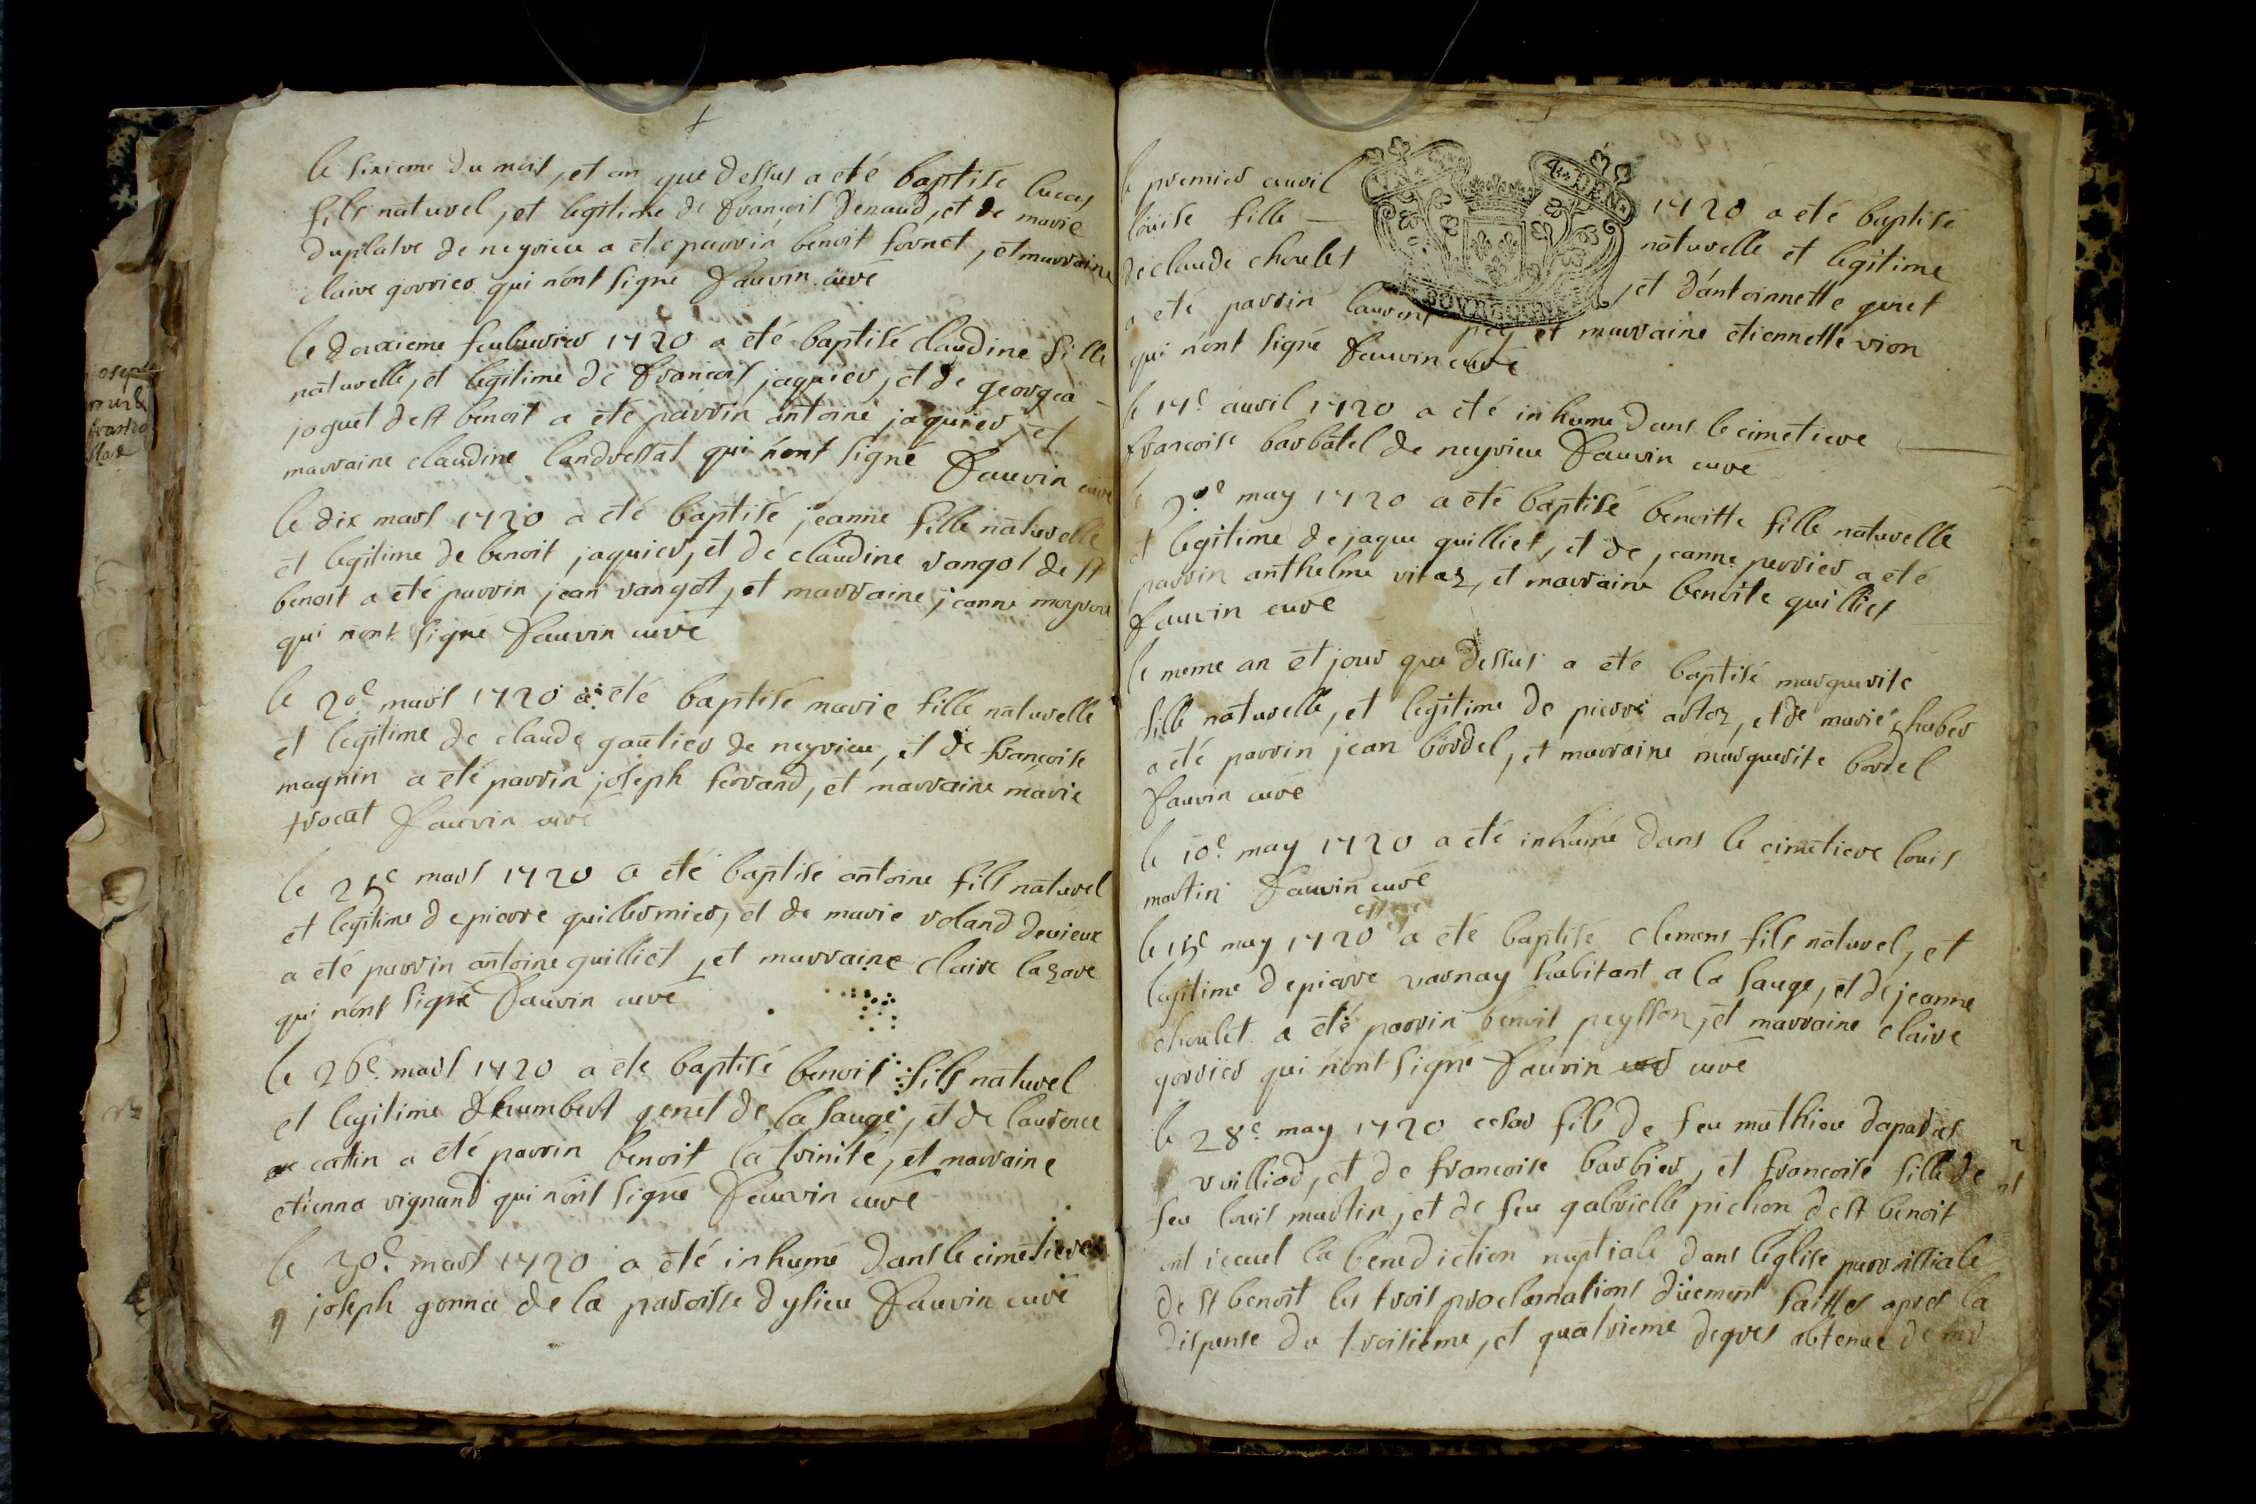 le sixieme du mois, et an que dessus a eté baptisé lucas
fils naturel, et legitime de françois denaud, et de marie
duplatre de neyrieu a eté parrin benoit fornet, et marraine
claire gorrier qui n'ont signé Fauvin curé
le deuxieme feubvrier 1720 a eté baptisé claudine fille
naturelle, et legitime de francois jaquier, et de georgea
joguet de st benoit a eté parrin antoine jaquier, et
marraine claudine landressat qui n'ont signé Fauvin curé
le dix mars 1720 a eté baptisé jeanne fille naturelle
et legitime de benoit jaquier, et de claudine vangot de st
benoit a eté parrin jean vangot, et marraine jeanne
qui n'ont signé Fauvin curé
le 20e mars 1720 a eté baptisé marie fille naturelle
et legitime de claude gautier de neyrieu, et de françoise
magnin a eté parrin joseph ferrand, et marraine marie
trocut Fauvin curé
le 25e mars 1720 a eté baptisé antoine fils naturel
et legitime de pierre guillermier, et de marie voland
a eté parrin antoine guilliet, et marraine claire lazare
qui n'ont signé Fauvin curé
le 26e mars 1720 a ete baptisé benoit fils naturel
et legitime d'humbert genet de la sauge, et de laurence
cattin a eté parrin benoit la trinité, et marraine
etienna vignand qui n'ont signé Fauvin curé
le 30e mars 1720 a eté inhumé dans le cimetiere
joseph gonna de la paroisse d'ysieu Fauvin curé
le premier auvril 1720 a eté baptisé
louise fille naturelle et legitime
de claude choulet, et d'antoinnette genet
a eté parrin laurent pey et marraine etiennette vion
qui n'ont signé Fauvin curé
le 14e auvril 1720 a eté inhumé dans le cimetiere
francoise barbatel de neyrieu Fauvin curé
le 3e may 1720 a eté baptisé benoitte fille naturelle
et legitime de jaque guilliet, et de jeanne perrier a eté
parrin anthelme vitaz, et marraine benoite guilliet
Fauvin curé
le meme an et jour que dessus a eté baptisé marguerite
fille naturelle, et legitime de pierre artoz, et de marie chaber
a eté parrin jean bordel, et marraine marguerite bordel
Fauvin curé
le 10e may 1720 a eté inhumé dans le cimetiere louis
martin Fauvin curé
le 15e may 1720 a eté baptisé clemens fils naturel, et
legitime de pierre varnay habitant a la sauge, et de jeanne
choulet a eté parrin benoit peysson, et marraine claire
gorrier qui n'ont signé Fauvin curé
le 28e may 1720 cesar fils de feu mathieu
vuilliod, et de francoise barbier, et francoise fille de
feu louis martin, et de feu gabrielle pichon de st benoit
ont receut la benediction nuptiale dans l'eglise parroissiale
de st benoit les trois proclamations düement faittes apres la
dispense du troisieme, et quatrieme degres obtenue de